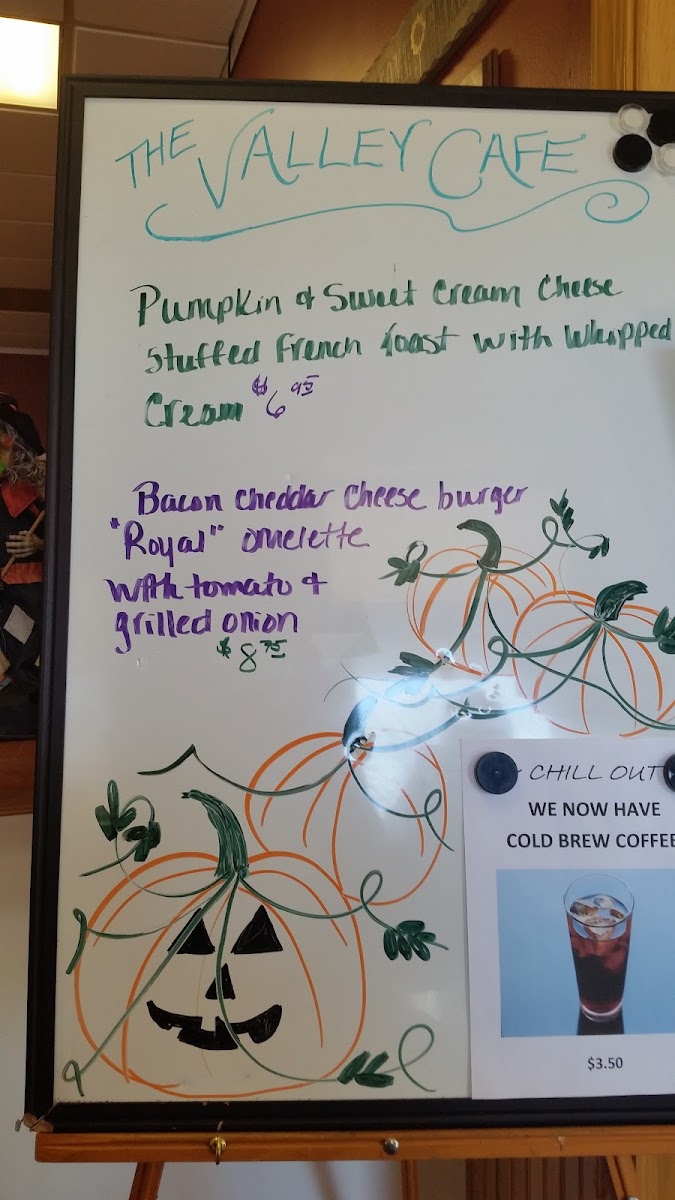 THE VALLEY CAFE
Pumpkin & Sweet Cream Cheese
Stuffed French toast with Whipped
Cream $6.95
Bacon cheddar cheese burger
"Royal" omelette
with tomato &
grilled onion
$8.75
CHILL OUT
WE NOW HAVE
COLD BREW COFFEE
$3.50